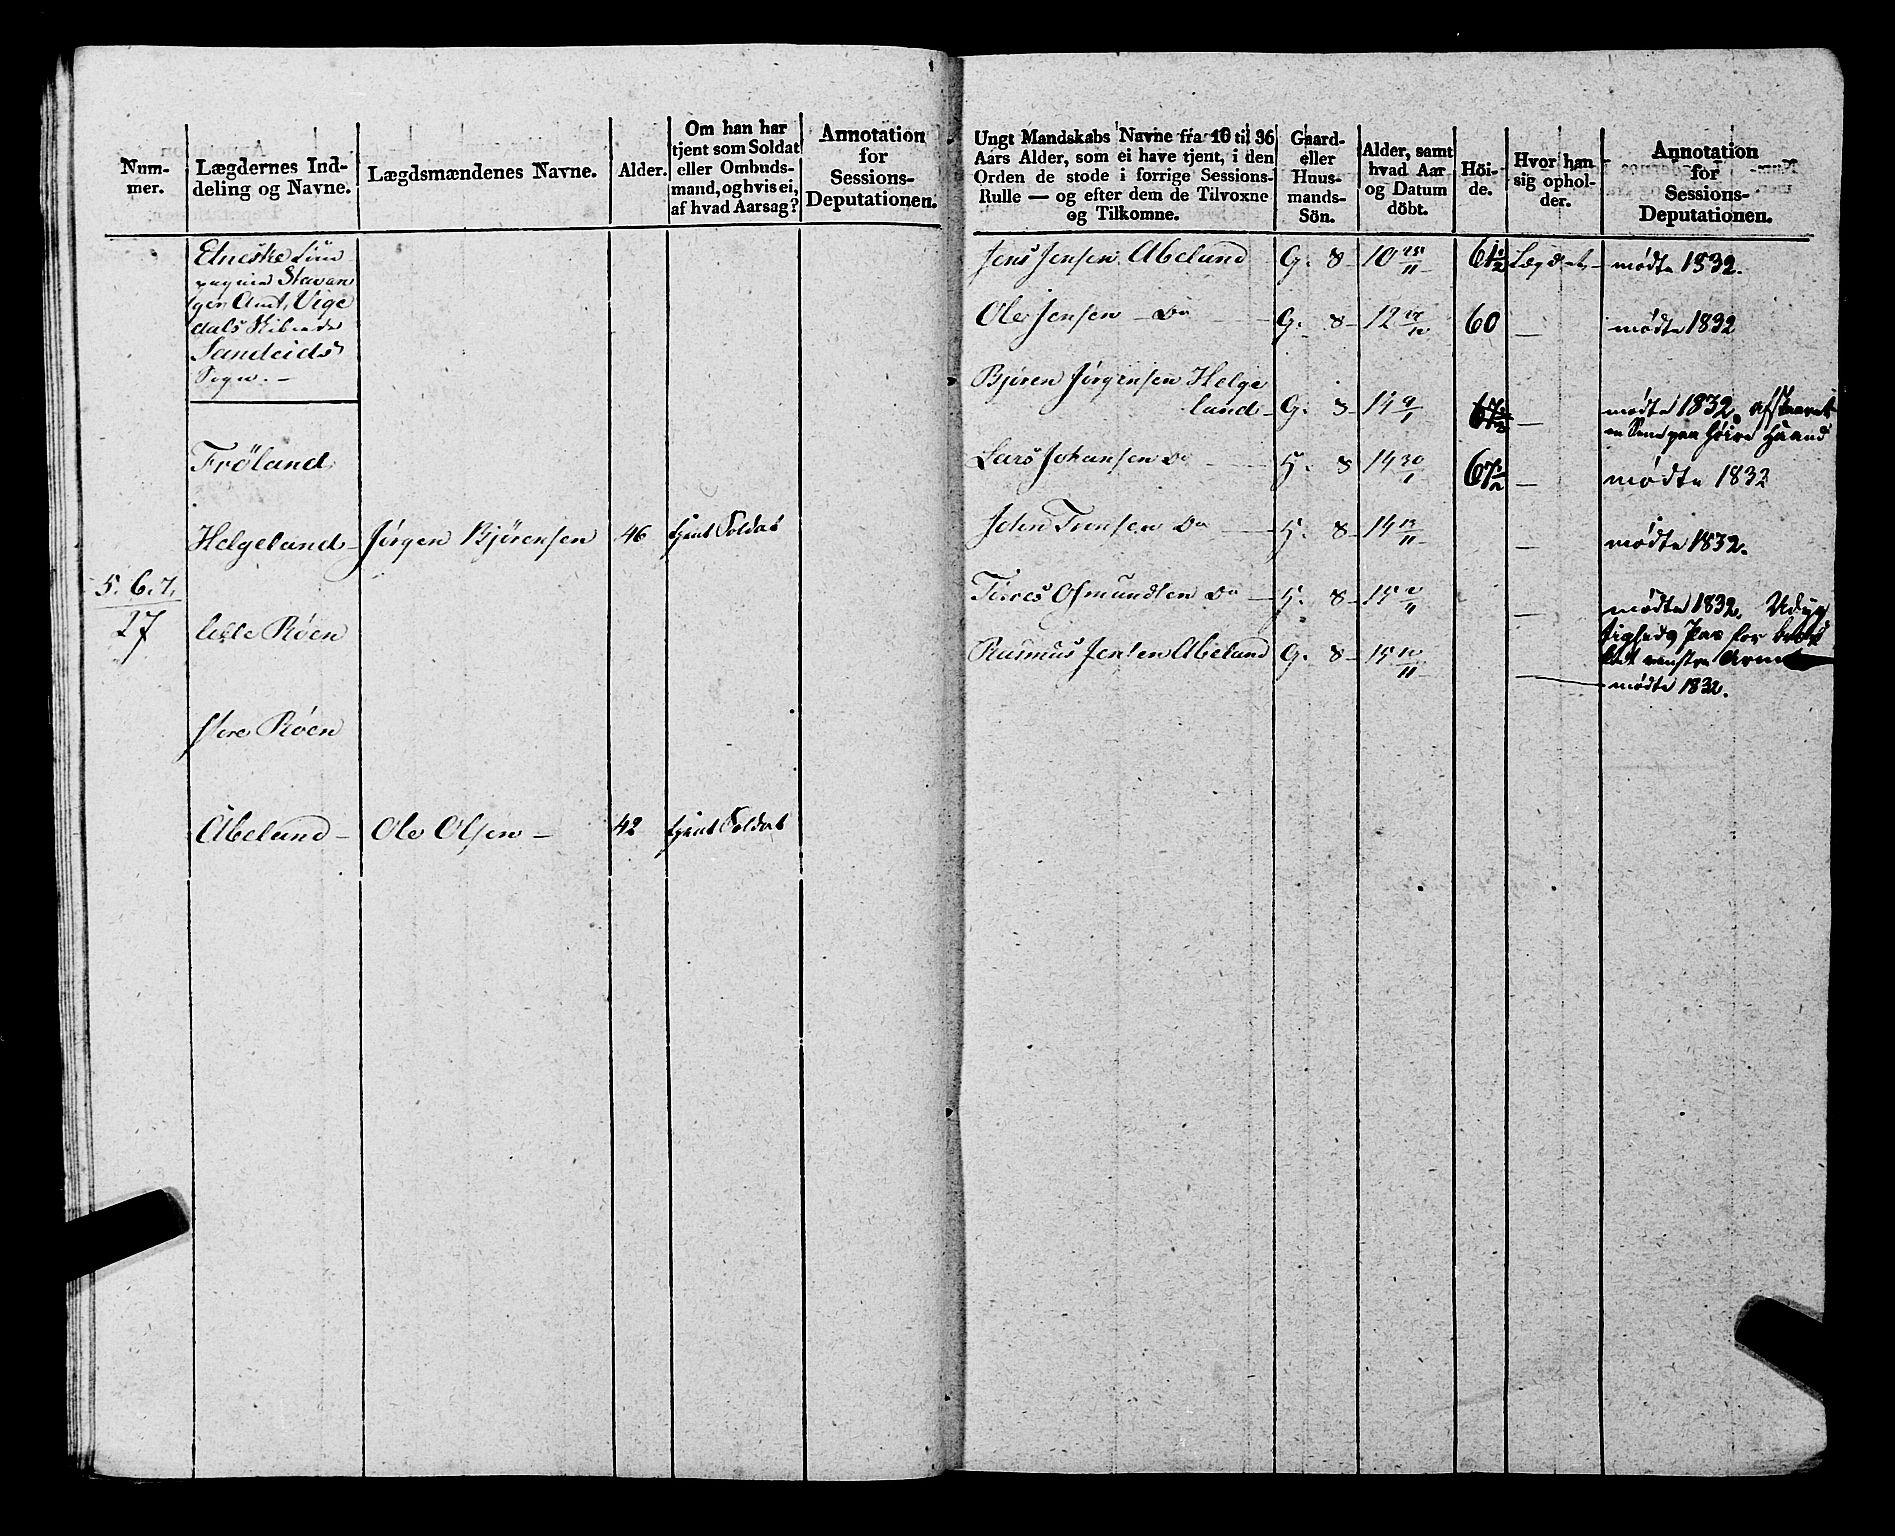 Num-
mer.
Lægdernes Ind-
deling og Navne.
Lægdsmændenes Navne.
Alder.
Om han har
tjent som Soldat
eller Ombuds-
mand, og hvis ei,
af hvad Aarsag?
Annotation
for
Sessions-
Deputationen.
Etneske Com
pagnie Stavan
ger Amt, Vige
dals Skibrede
Sandeids
Sogn. -
Fröland
Helgeland - Jørgen Bjørensen 46 tjent Soldat
5. 6. 7.
27
lille Røen
store Røen
Abeland - Ole Olsen - 42 tjent Soldat
Ungt Mandskabs Navne fra 16 til 36
Aars Alder, som ei have tjent, i den
Orden de stode i forrige Sessions-
Rulle — og efter dem de Tilvoxne
og Tilkomne.
Gaard-
eller
Huus-
mands-
Sön.
Alder, samt
hvad Aar
og Datum
döbt.
Höi-
de.
Hvor han
sig ophol-
der.
Annotation
for
Sessions-
Deputationen.
Jens Jensen Abeland G. 8 - 10 25/11 61 1/2 Lægdet - mødte 1832.
Ole Jensen - Do G. 8 - 12 60 — mødte 1832
Bjøren Jørgensen Helge
land - G. 8 - 14 9/1 67 1/2 — mødte 1832, afskaaret
en Sene paa høire Haand
Lars Johansen Do H. 8 14 30/1 67 1/2 — mødte 1832
John Tonsen Do H. 8 - 14 13/11 — mødte 1832.
Osmundsen Do H. 8 - 15 2/11 — mødte 1832. Udyg
tigheds Pas for
venstre Arm
Rasmus Jensen Abeland G. 8 - 15 10/11 — mødte 1832.